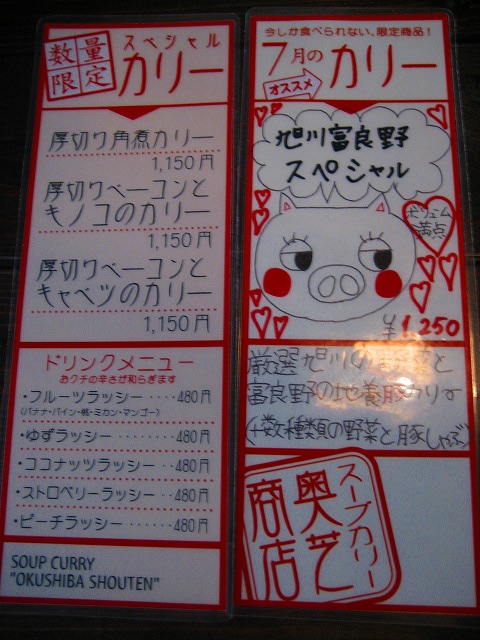 数量
限定
スペシャル
カリー
厚切り角煮カリー
1,150円
厚切りベーコンと
キノコのカリー
1,150円
厚切りベーコンと
キャベツのカリー
1,150円
ドリンクメニュー
おクチの辛さが和らぎます
・フルーツラッシー ････480円
(バナナ・パイン・桃・ミカン・マンゴー)
・ゆずラッシー ････････480円
・ココナッツラッシー ･･480円
・ストロベリーラッシー ･･480円
・ピーチラッシー ･･････480円
SOUP CURRY
"OKUSHIBA SHOUTEN"
今しか食べられない、限定商品!
7月の
オススメ
カリー
旭川富良野
スペシャル
ボリューム
満点
¥1,250
厳選旭川の野菜と
富良野の地養豚カリー
(+数種類の野菜と豚しゃぶ)
スープカリー
奥芝
商店